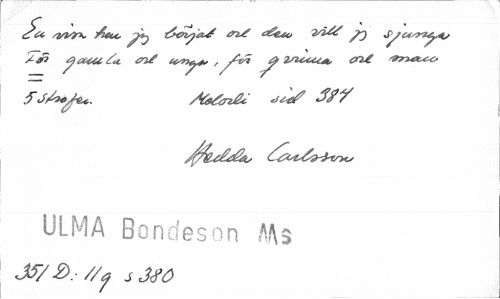 En visa har jag börjat och den vill jag sjunga
För gamla och unga, för qvinna och man
=
5 strofer. Melodi sid 384
Hedda Carlsson
ULMA Bondeson Ms
351 D: 11q s 380